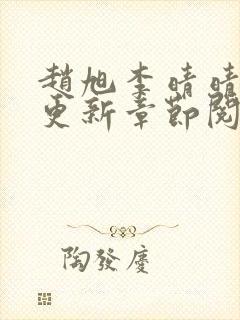 趙旭李晴晴
更新章節閱
陶發慶